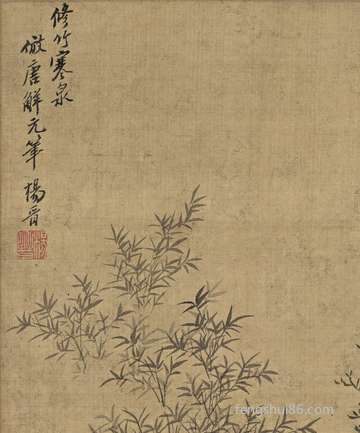 修竹寒泉
倣唐解元筆 楊晋
fengshui86.com